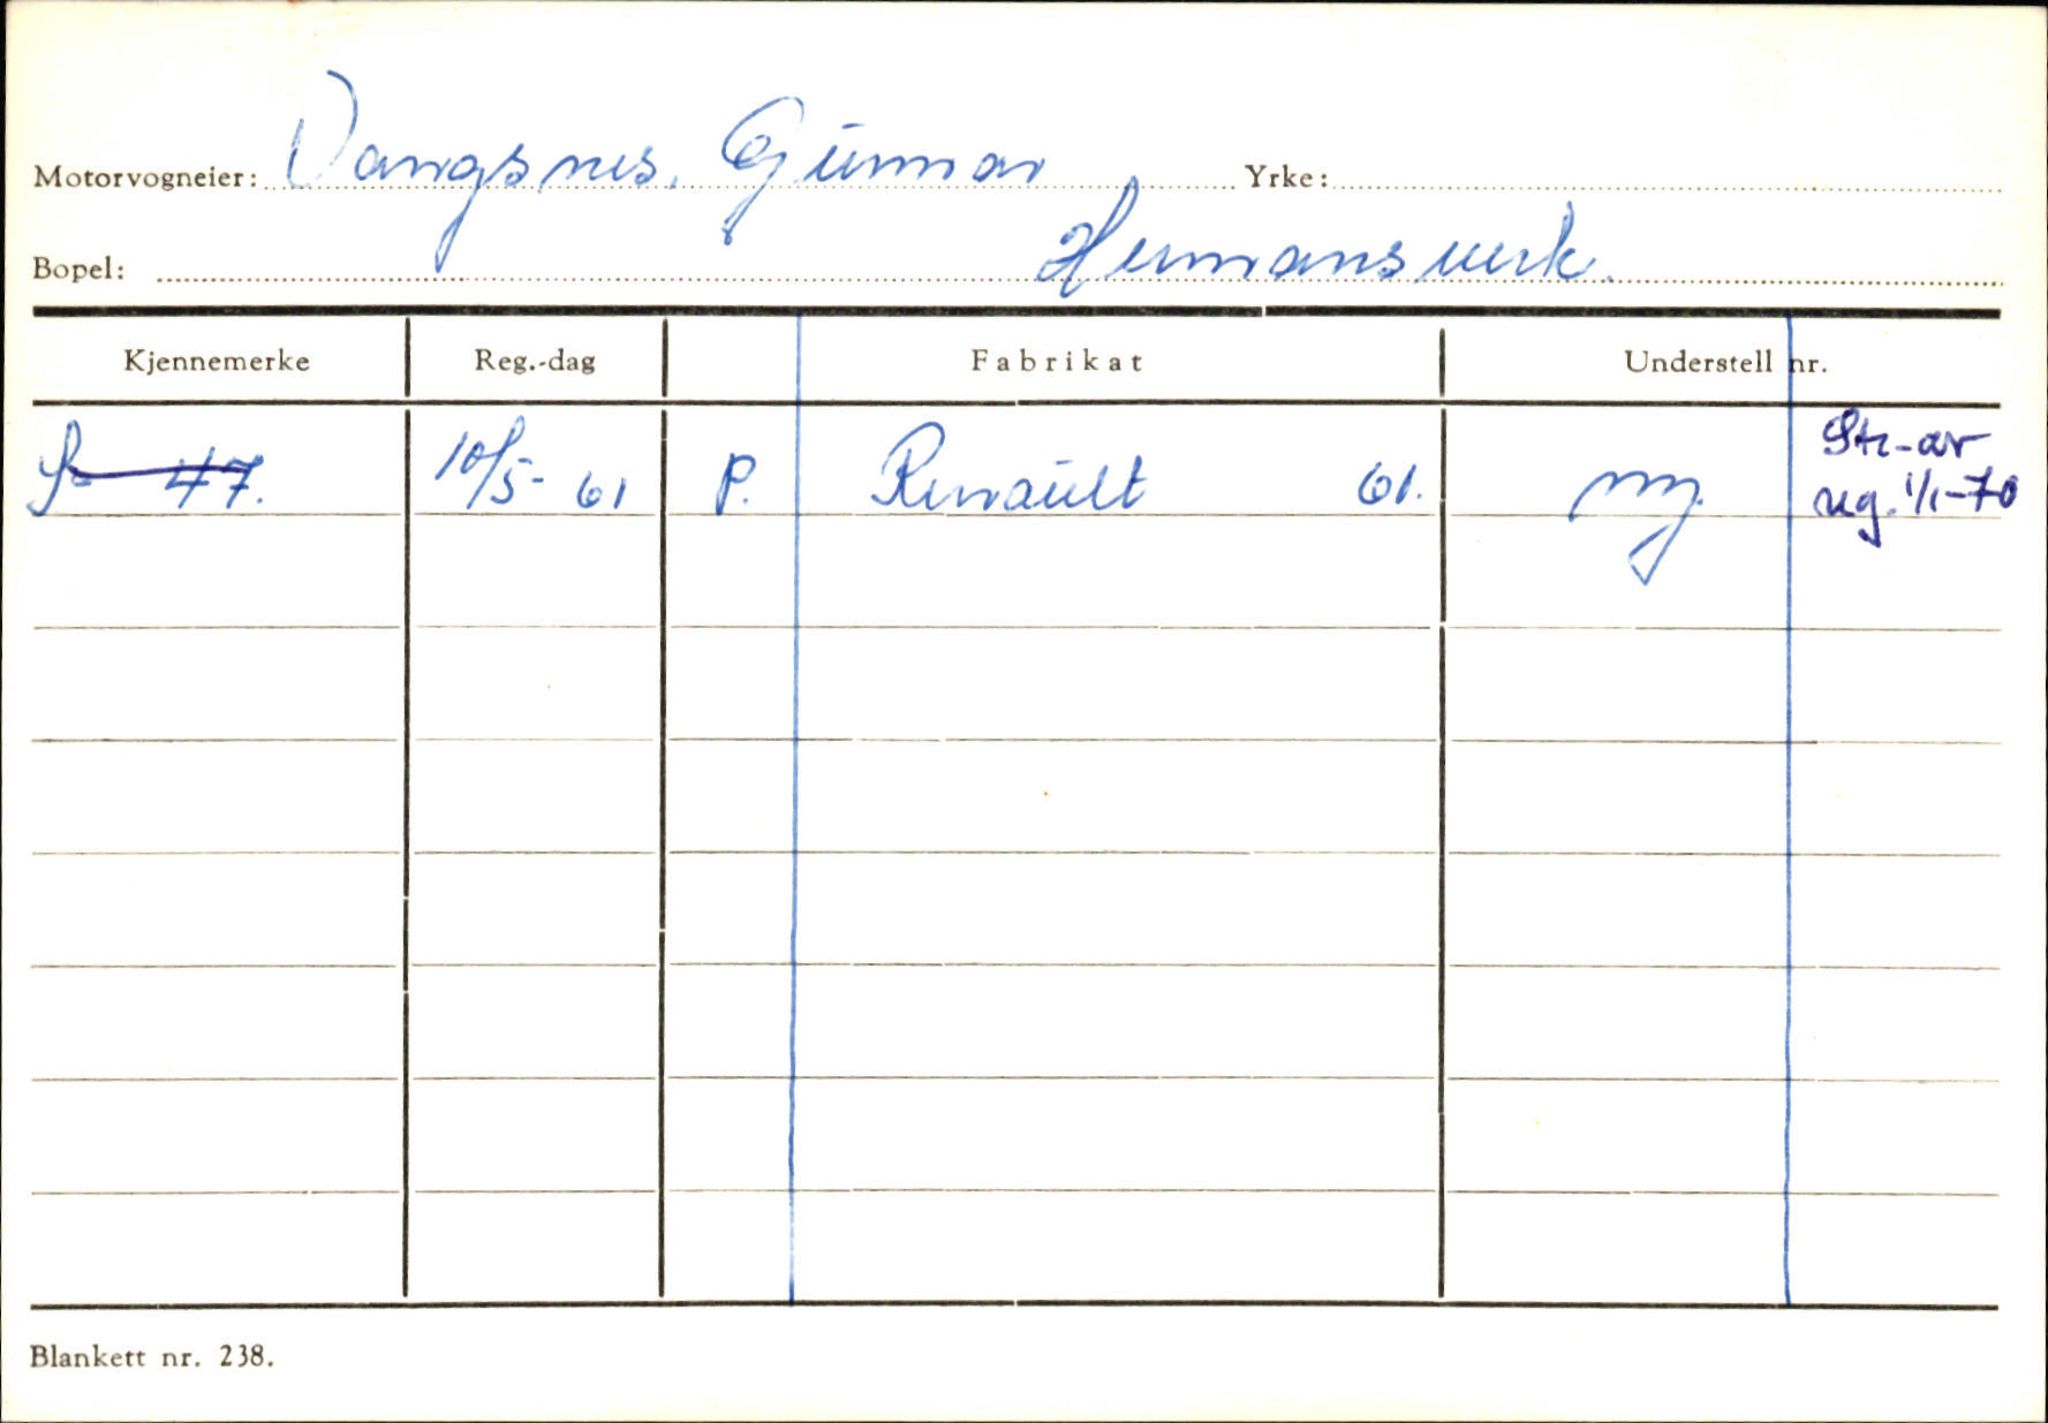 Motorvogneier: Vangsnes, Gunnar Yrke:
Bopel: Hermansverk.
Kjennemerke Reg.-dag Fabrikat Understell nr.
S- 47. 10/5- 61 P. Renault 61. ny. Str-av
reg. 1/1-70
Blankett nr. 238.